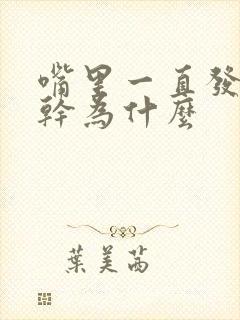 嘴里一直發
幹為什麼
葉美茜